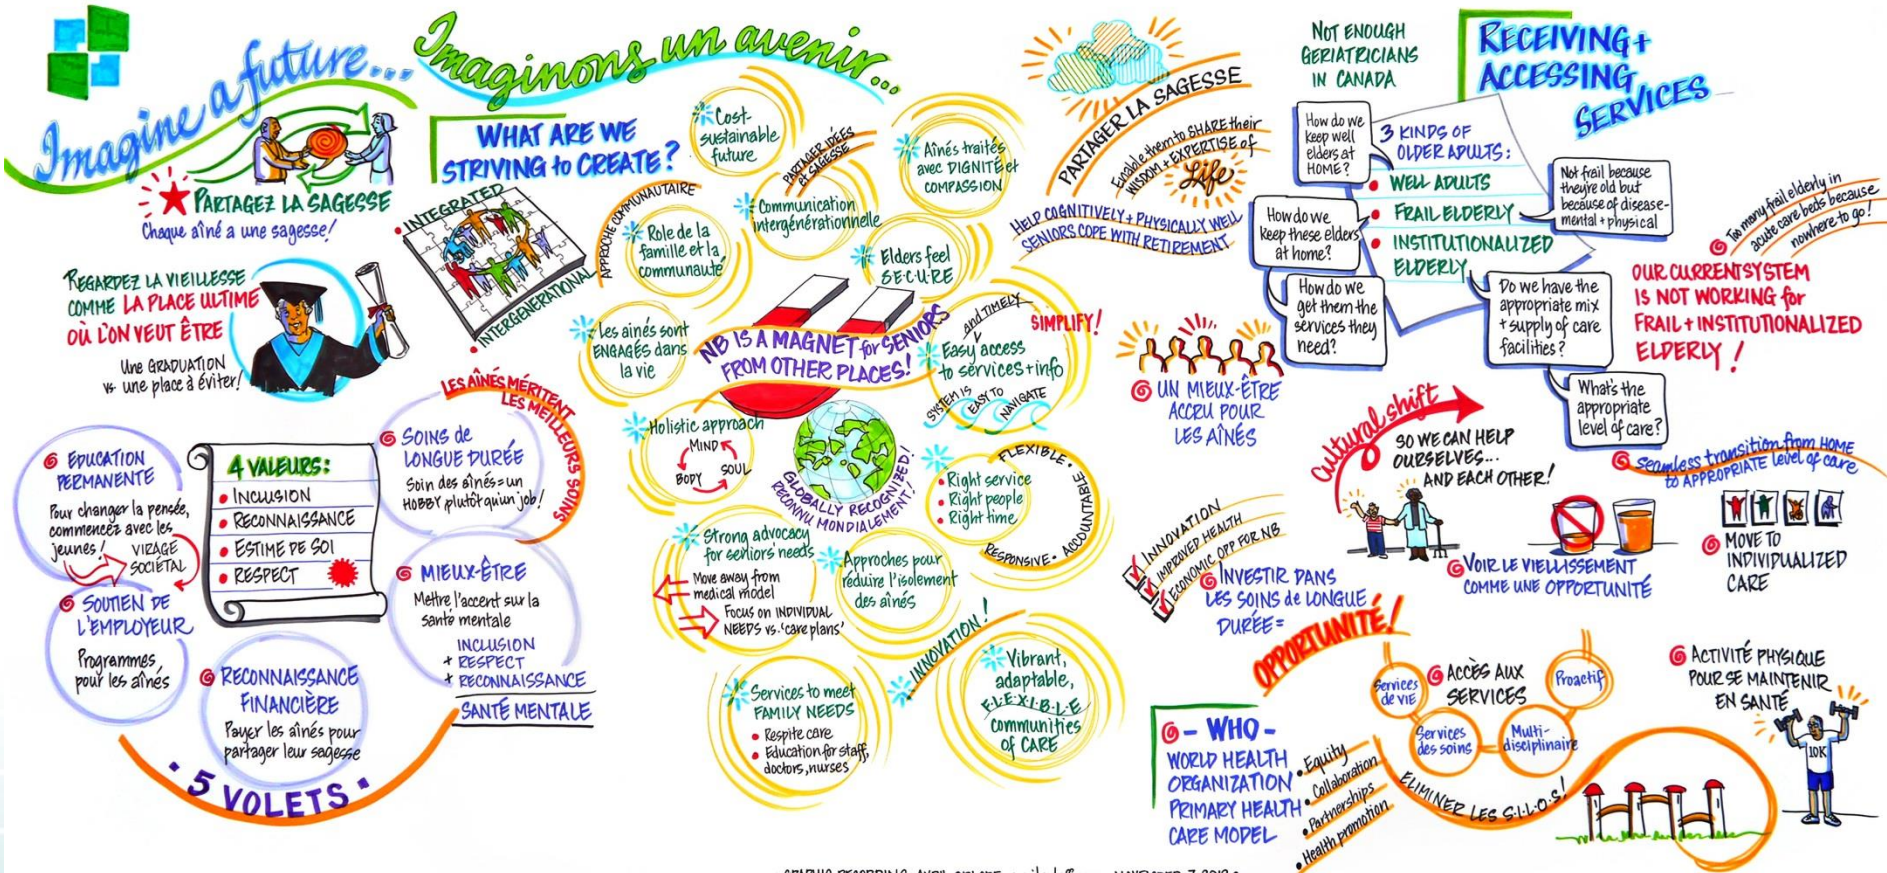 Imagine a future...
Imaginons un avenir...
PARTAGEZ LA SAGESSE
Chaque aîné a une sagesse!
REGARDEZ LA VIEILLESSE
COMME LA PLACE ULTIME
OÙ L'ON VEUT ÊTRE
Une GRADUATION
vs une place à éviter!
EDUCATION
PERMANENTE
Pour changer la pensée,
commencez avec les
jeunes!
VIRAGE
SOCIÉTAL
SOUTIEN DE
L'EMPLOYEUR
Programmes
pour les aînés
4 VALEURS:
INCLUSION
RECONNAISSANCE
ESTIME DE SOI
RESPECT
LES AÎNÉS MÉRITENT
LES MEILLEURS SOINS
SOINS de
LONGUE DURÉE
Soin des aînés = un
HOBBY plutôt qu'un job!
MIEUX-ÊTRE
Mettre l'accent sur la
santé mentale
INCLUSION
+ RESPECT
+ RECONNAISSANCE
SANTÉ MENTALE
RECONNAISSANCE
FINANCIÈRE
Payer les aînés pour
partager leur sagesse
• 5 VOLETS •
WHAT ARE WE
STRIVING to CREATE?
• INTEGRATED
• INTERGENERATIONAL
Cost-
sustainable
future
PARTAGER IDÉES
et SAGESSE
Aînés traités
avec DIGNITÉ et
COMPASSION
APPROCHE COMMUNAUTAIRE
Role de la
famille et la
communauté
Communication
intergénérationnelle
Elders feel
S•E•C•U•R•E
les ainés sont
ENGAGÉS dans
la vie
NB IS A MAGNET for SENIORS
FROM OTHER PLACES!
and TIMELY
SIMPLIFY!
Easy access
to services + info
SYSTEM IS
EASY TO
NAVIGATE
Holistic approach
MIND
BODY
SOUL
GLOBALLY RECOGNIZED!
RECONNU MONDIALEMENT!
FLEXIBLE • ACCOUNTABLE • RESPONSIVE •
Right service
Right people
Right time
Strong advocacy
for seniors' needs
Move away from
medical model
Focus on INDIVIDUAL
NEEDS vs. 'care plans'
Approches pour
réduire l'isolement
des aînés
INNOVATION!
Services to meet
FAMILY NEEDS
• Respite care
• Education for staff,
doctors, nurses
Vibrant,
adaptable,
F•L•E•X•I•B•L•E
communities
of CARE
PARTAGER LA SAGESSE
Enable them to SHARE their
WISDOM + EXPERTISE of
Life
HELP COGNITIVELY + PHYSICALLY WELL
SENIORS COPE WITH RETIREMENT
UN MIEUX-ÊTRE
ACCRU POUR
LES AÎNÉS
INNOVATION
IMPROVED HEALTH
ECONOMIC OPP FOR NB
INVESTIR DANS
LES SOINS de LONGUE
DURÉE =
OPPORTUNITÉ!
NOT ENOUGH
GERIATRICIANS
IN CANADA
RECEIVING +
ACCESSING
SERVICES
How do we
keep well
elders at
HOME?
3 KINDS OF
OLDER ADULTS:
• WELL ADULTS
• FRAIL ELDERLY
• INSTITUTIONALIZED
ELDERLY
Not frail because
they're old but
because of disease-
mental + physical
How do we
keep these elders
at home?
How do we
get them the
services they
need?
Do we have the
appropriate mix
+ supply of care
facilities?
What's the
appropriate
level of care?
Too many frail elderly in
acute care beds because
nowhere to go!
OUR CURRENT SYSTEM
IS NOT WORKING for
FRAIL + INSTITUTIONALIZED
ELDERLY!
Cultural shift
SO WE CAN HELP
OURSELVES...
AND EACH OTHER!
Seamless transition from HOME
to APPROPRIATE level of care
VOIR LE VIELLISSEMENT
COMME UNE OPPORTUNITÉ
MOVE TO
INDIVIDUALIZED
CARE
- WHO -
WORLD HEALTH
ORGANIZATION
PRIMARY HEALTH
CARE MODEL
• Equity
• Collaboration
• Partnerships
• Health promotion
Services
de vie
ACCÈS AUX
SERVICES
Proactif
Services
des soins
Multi-
disciplinaire
ELIMINER LES S•I•L•O•S!
ACTIVITÉ PHYSIQUE
POUR SE MAINTENIR
EN SANTÉ
10K